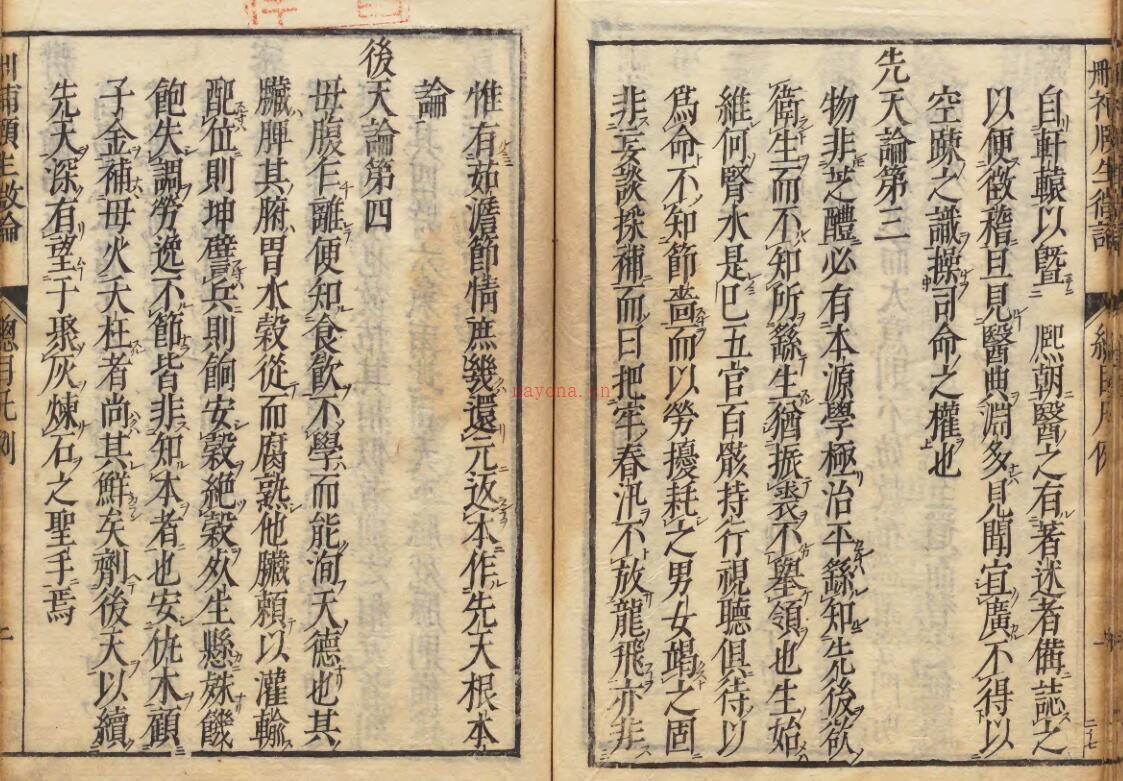 自軒轅以曁　熈朝醫之有著述者備誌之
以便徵稽旦見醫典淵多見聞宜廣不得以
空疎之識操司命之權也
先天論第三
物非芝醴必有本源學極治平繇知先後欲
衛生而不知所繇生猶振裘不挈領也生始
維何腎水是巳五官百骸持行視聽俱待以
爲命不知節嗇而以勞擾耗之男女竭之固
非妄談採補而曰把牢春汛不放龍飛亦非
惟有茹澹節情庶幾還元返本作先天根本
論
後天論第四
毋腹乍離便知食飮不學而能洵天德也其
臟脾其腑胃水穀從而腐熟他臟頼以灌輸
配位則坤譬兵則餉安穀絶穀夘生懸殊饑
飽失調勞逸不節皆非知本者也安仇木顧
子金補毋火夭枉者尚其鮮矣劑後天以續
先天深有望于聚灰煉石之聖手焉
總目凡例
nayona.cn